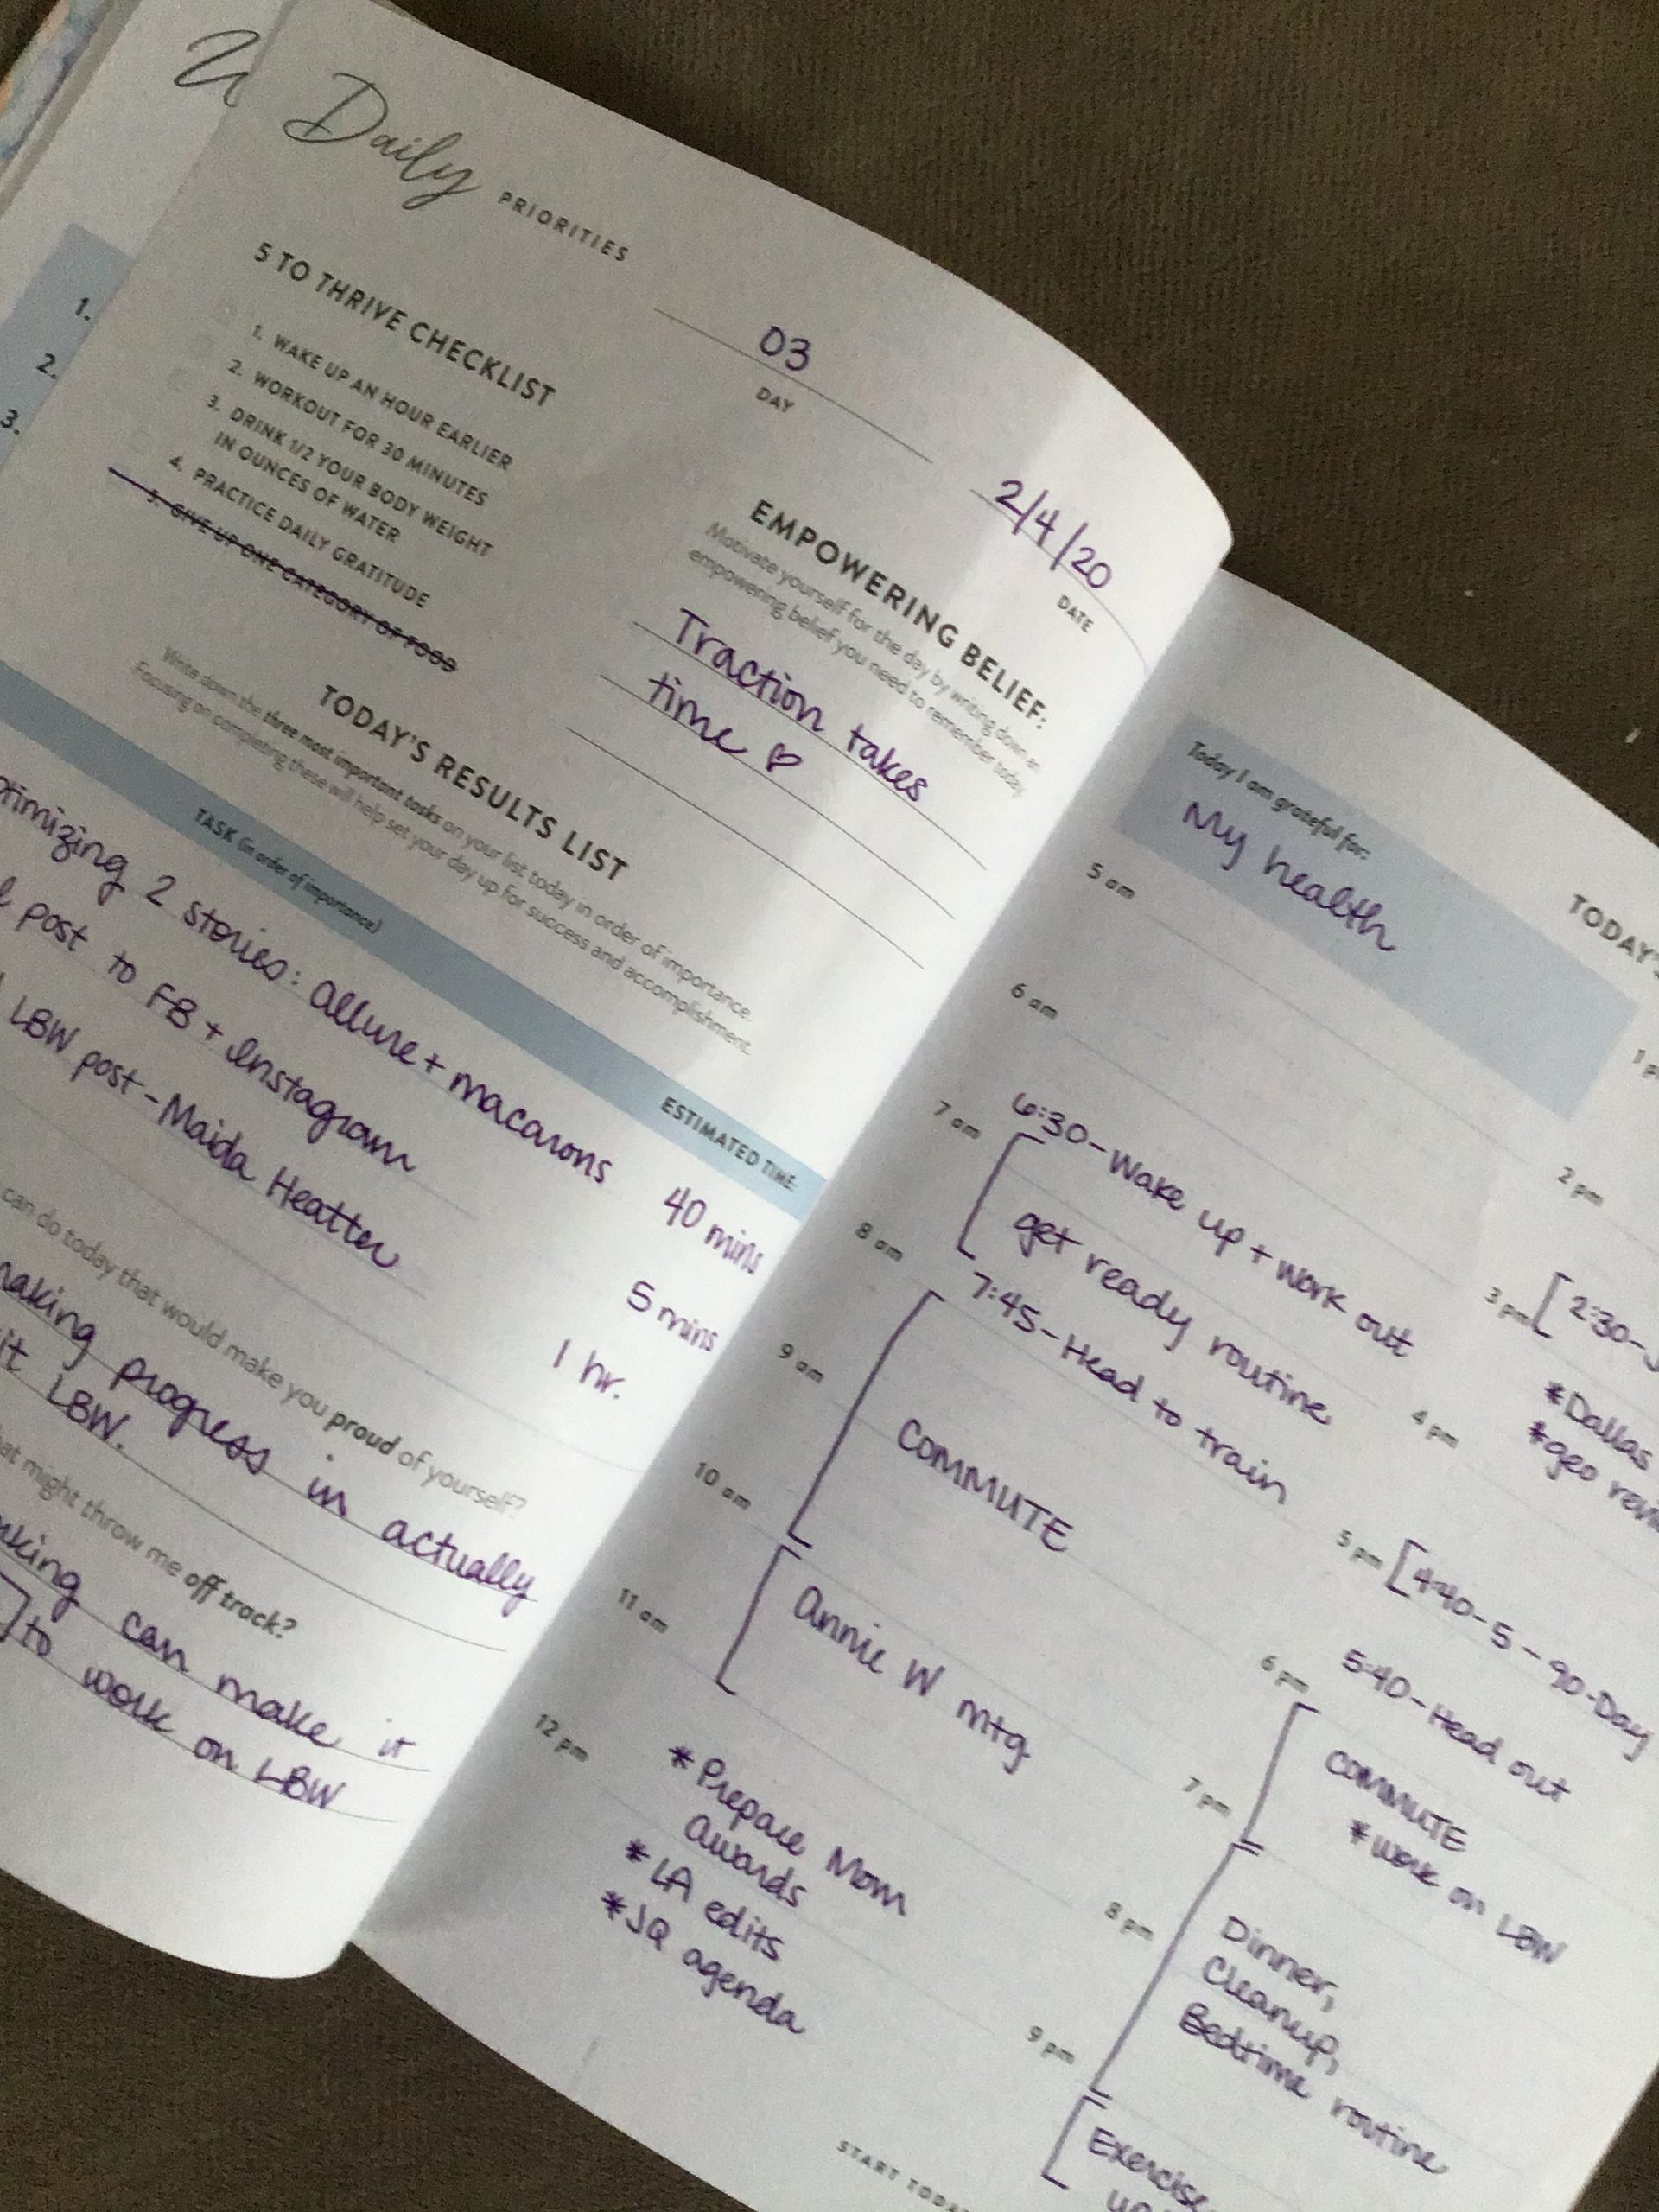 Daily PRIORITIES
03
DAY
2/4/20
DATE
5 TO THRIVE CHECKLIST
1. WAKE UP AN HOUR EARLIER
2. WORKOUT FOR 30 MINUTES
3. DRINK 1/2 YOUR BODY WEIGHT
IN OUNCES OF WATER
4. PRACTICE DAILY GRATITUDE
5. GIVE UP ONE CATEGORY OF FOOD
EMPOWERING BELIEF:
Motivate yourself for the day by writing down an
empowering belief you need to remember today.
Traction takes
time ♡
TODAY'S RESULTS LIST
Write down the three most important tasks on your list today in order of importance.
Focusing on completing these will help set your day up for success and accomplishment.
TASK (in order of importance) ESTIMATED TIME:
2 stories: Allure + macarons 40 mins
post to FB + Instagram 5 mins
LBW post - Maida Heatter 1 hr.
can do today that would make you proud of yourself?
progress in actually
LBW.
might throw me off track?
can make it
to work on LBW
1.
2.
3.
Today I am grateful for:
My health
TODAY'S
5 am
6 am
6:30 - Wake up + work out
7 am
get ready routine
7:45 - Head to train
8 am
9 am
COMMUTE
10 am
Annie W mtg
11 am
12 pm
* Prepare Mom
Awards
* LA edits
* JQ agenda
2 pm
3 pm
2:30 -
* Dallas
* geo
4 pm
4:40 - 5 - 90-Day
5 pm
5:40 - Head out
6 pm
COMMUTE
* work on LBW
7 pm
Dinner,
Cleanup,
Bedtime routine
8 pm
9 pm
Exercise,
START